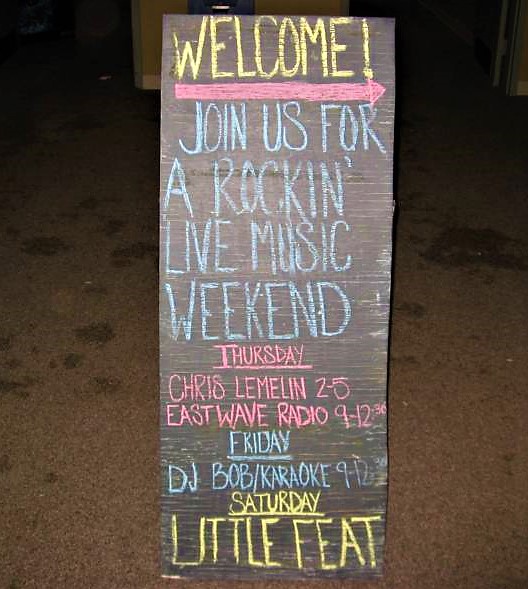 WELCOME!
JOIN US FOR
A ROCKIN'
LIVE MUSIC
WEEKEND
THURSDAY
CHRIS LEMELIN 2-5
EAST WAVE RADIO 9-12:30
FRIDAY
DJ BOB/KARAOKE 9-12:30
SATURDAY
LITTLE FEAT